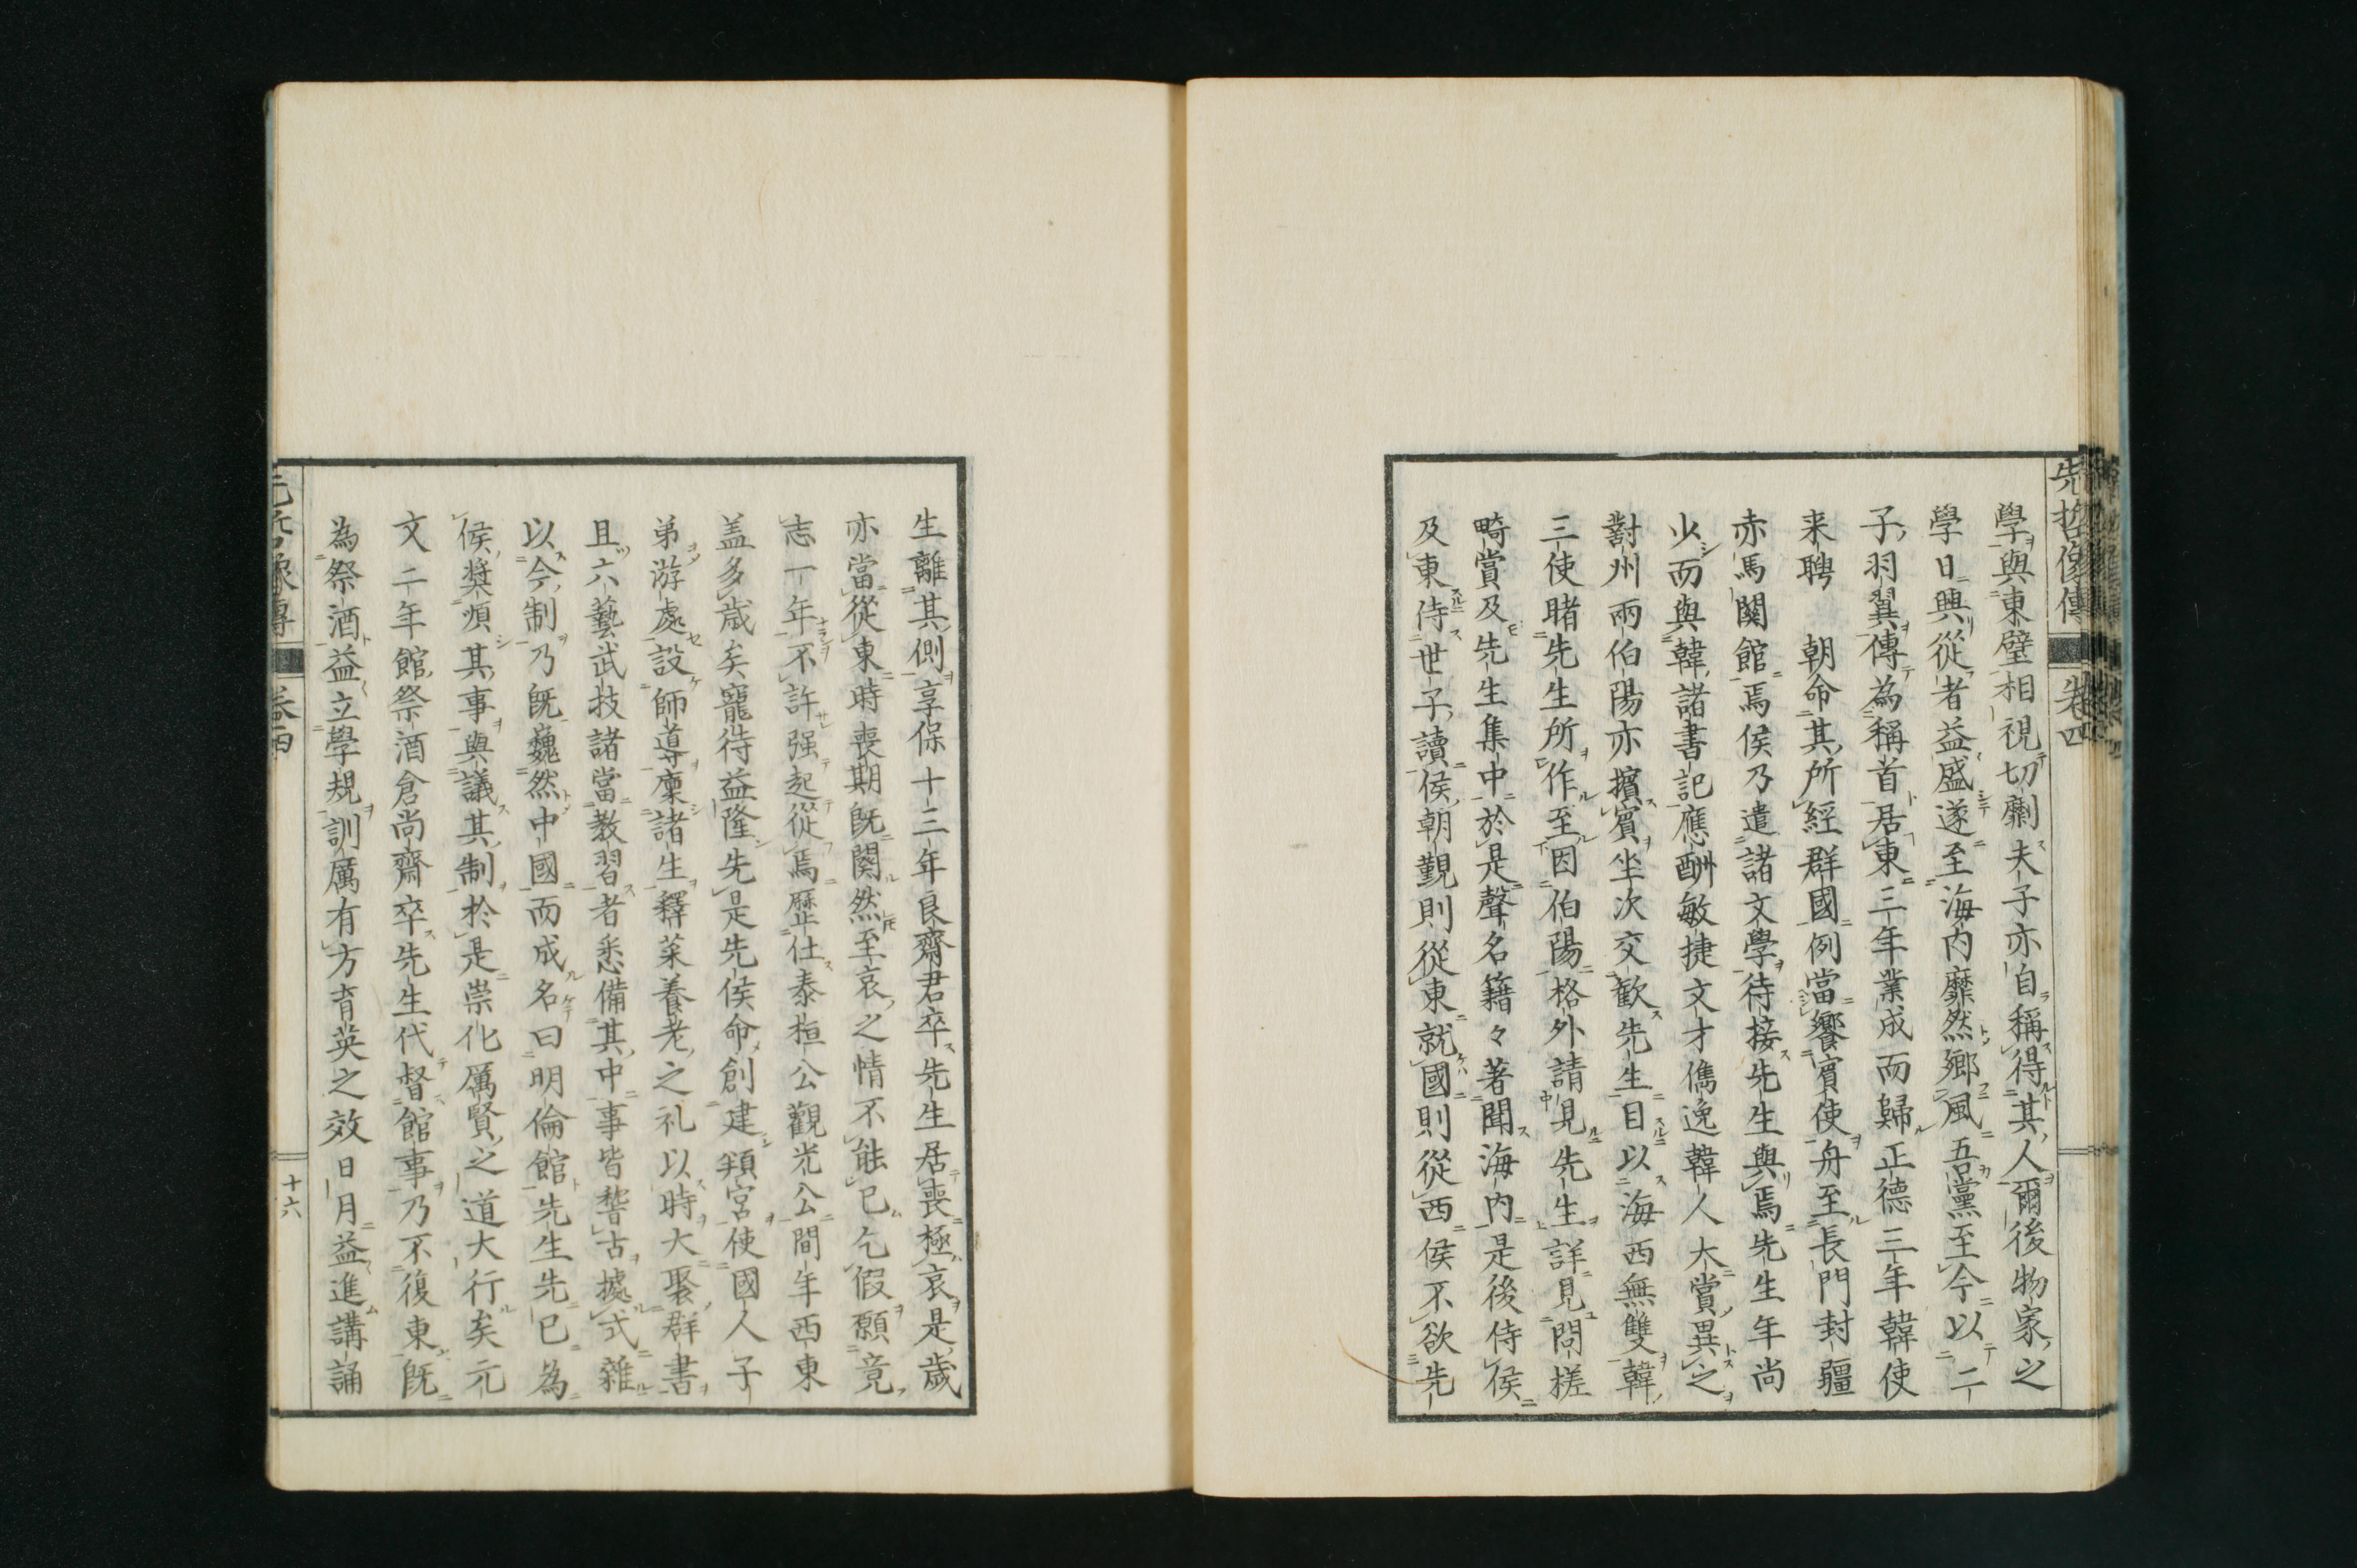 先哲像傳 卷四
學與東壁相視切劘夫子亦自稱得其人爾後物家之
學日興從者益盛遂至海内靡然鄉風吾黨至今以二
子羽翼傳為稱首居東三年業成而歸正德三年韓使
来聘　朝命其所經群國例當饗賓使舟至長門封疆
赤馬關館焉侯乃遣諸文學待接先生與焉先生年尚
少而與韓諸書記應酬敏捷文才儁逸韓人大賞異之
對州雨伯陽亦擯賓坐次交歡先生目以海西無雙韓
三使睹先生所作至因伯陽格外請見先生詳見問槎
畸賞及先生集中於是聲名籍々著聞海内是後侍侯
及東侍世子讀侯朝覲則從東就國則從西侯不欲先
生離其側享保十三年良齋君卒先生居喪極哀是歲
亦當從東時喪期既闋然至哀之情不能已乞假願竟
志一年不許强起從焉歷仕泰桓公觀光公間年西東
盖多歲矣寵待益隆先是先侯命創建頖宮使國人子
弟游處設師導廩諸生釋菜養老之礼以時大聚群書
且六藝武技諸當教習者悉備其中事皆稽古據式雜
以今制乃既巍然中國而成名曰明倫館先生先已為
侯奬順其事與議其制於是崇化厲賢之道大行矣元
文二年館祭酒倉尚齋卒先生代督館事乃不復東既
為祭酒益立學規訓厲有方育英之效日月益進講誦
十六